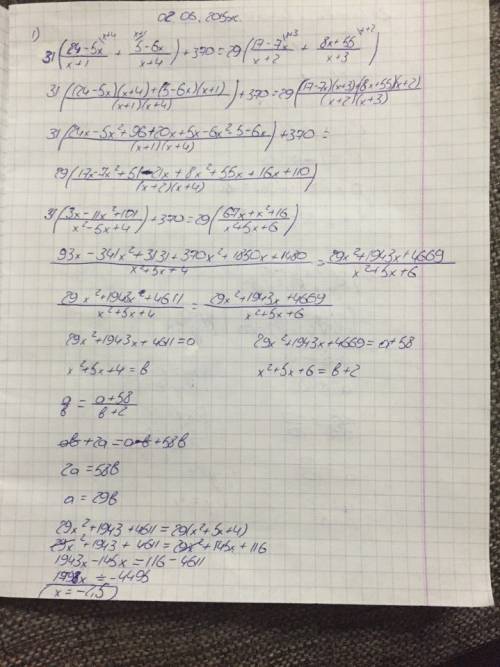 02. 06. 205ж.
1) 31((24-5x)/(x+1) \x+4 + (5-6x)/(x+4) \x+1) + 370 = 29((17-7x)/(x+2) \x+3 + (8x+55)/(x+3) \x+2)
31(((24-5x)(x+4)+(5-6x)(x+1))/((x+1)(x+4))) + 370 = 29(((17-7x)(x+3)+(8x+55)(x+2))/((x+2)(x+3)))
31((24x-5x²+96+20x+5x-6x²+5-6x)/((x+1)(x+4))) + 370 =
29((17x-7x²+51-21x+8x²+55x+16x+110)/((x+2)(x+4)))
31((3x-11x²+101)/(x²-5x+4)) + 370 = 29((67x+x²+16)/(x²+5x+6))
(93x-341x²+3131+370x²+1850x+1480)/(x²+5x+4) = (29x²+1943x+4669)/(x²+5x+6)
(29x²+1943x+4611)/(x²+5x+4) = (29x²+1943x+4669)/(x²+5x+6)
29x²+1943x+4611=a 29x²+1943x+4669=a+58
x²+5x+4=b x²+5x+6=b+2
a/b = (a+58)/(b+2)
ab+2a=ab+58b
2a=58b
a=29b
29x²+1943+4611=29(x²+5x+4)
29x²+1943+4611=29x²+145x+116
1943x-145x=116-4611
1798x=-4495
x=-2,5